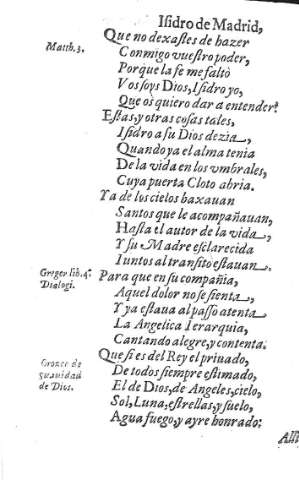 Isidro de Madrid,
Que no dexastes de hazer
Matth. 3.
Conmigo vuestro poder,
Porque la fe me faltò
Vos soys Dios, Isidro yo,
Que os quiero dar a entender?
Estas, y otras cosas tales,
Isidro a su Dios dezia,
Quando ya el alma tenia
De la vida en los vmbrales,
Cuya puerta Cloto abria.
Ya de los cielos baxauan
Santos que le acompañauan,
Hasta el autor de la vida,
Y su Madre esclarecida
Iuntos al transito estauan.
Gregor lib. 4.
Dialogi.
Para que en su compañia,
Aquel dolor no se sienta,
Y ya estaua al passo atenta
La Angelica Ierarquia,
Cantando alegre, y contenta.
de
suauidad
de Dios.
Que si es del Rey el priuado,
De todos siempre estimado,
El de Dios, de Angeles, cielo,
Sol, Luna, estrellas, y suelo,
Agua fuego, y ayre honrado: